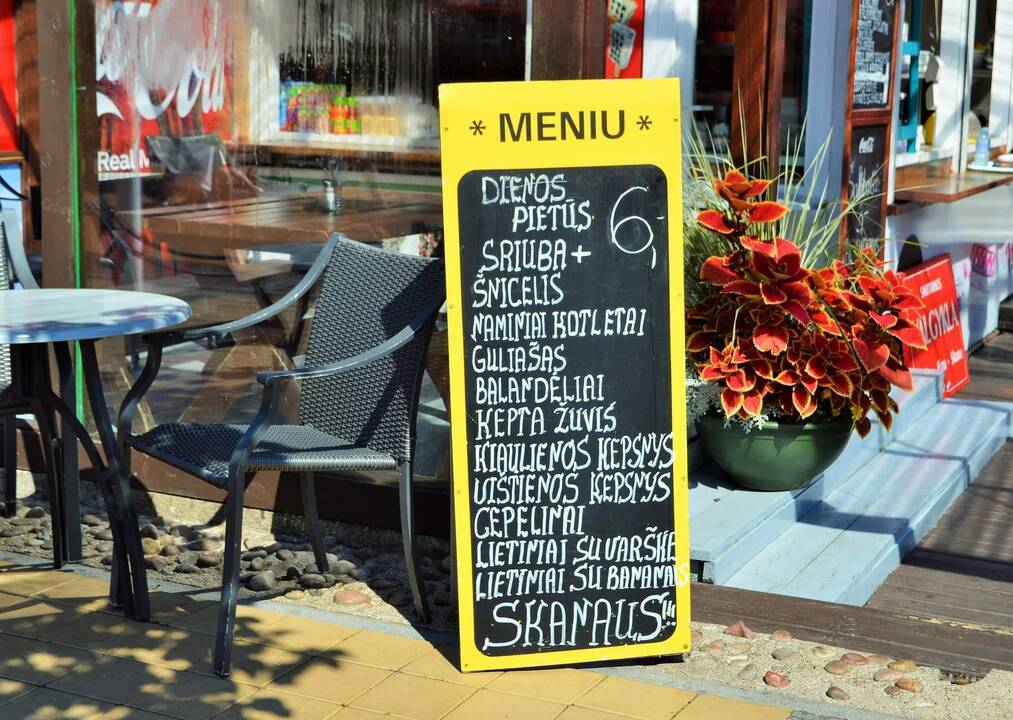 * MENIU *
DIENOS
PIETŪS 6,-
SRIUBA +
ŠNICELIS
NAMINIAI KOTLETAI
GULIAŠAS
BALANDĖLIAI
KEPTA ŽUVIS
KIAULIENOS KEPSNYS
VIŠTIENOS KEPSNYS
CEPELINAI
LIETINIAI SU VARŠKE
LIETINIAI SU BANANAIS
SKANAUS!!!
Real
Coca-Cola